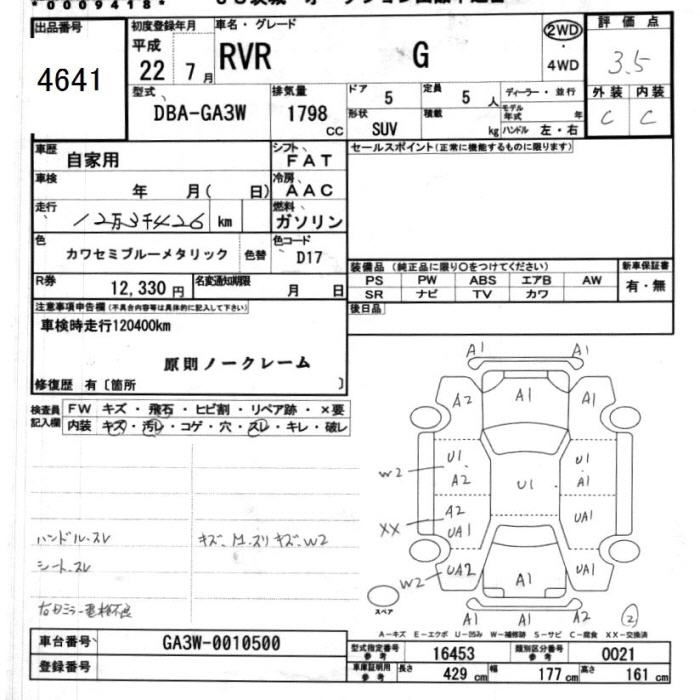 *0009418*
出品番号
4641
初度登録年月
平成
22 7月
車名・グレード
RVR G
2WD
・
4WD
評価点
3.5
外装 内装
C C
型式
DBA-GA3W
排気量
1798
CC
ドア
5
定員
5 人
形状
SUV
積載
kg
ディーラー・並行
モデル年式 年
ハンドル 左・右
車歴
自家用
シフト
FAT
車検
年 月( 日)
冷房
AAC
走行
12万3千426 km
燃料
ガソリン
色
カワセミブルーメタリック
色替
色コード
D17
R券
12,330円
名変通知期限
月 日
セールスポイント(正常に機能するものに限ります)
装備品 (純正品に限り○をつけてください)
PS PW ABS エアB AW
SR ナビ TV カワ
新車保証書
有・無
後日品
注意事項申告欄(不具合内容等は具体的に記入して下さい)
車検時走行120400km
原則ノークレーム
修復歴 有〔箇所 〕
検査員記入欄
FW キズ・飛石・ヒビ割・リペア跡・×要
内装 キズ・汚レ・コゲ・穴・スレ・キレ・破レ
ハンドルスレ
シートスレ
キズ、M.スリキズ、W2
A1 A1
A2 A1 A1
U1 A1
W2 A2 U1
A2 UA1
XX UA1
UA2 A1 UA1
W2
A1 A1 A2
スペア
②
A-キズ E-エクボ U-凹み W-補修跡 S-サビ C-腐食 XX-交換済
車台番号
GA3W-0010500
登録番号
型式指定番号
参考
16453
類別区分番号
参考
0021
車庫証明用
参考
長さ
429 cm
幅
177 cm
高さ
161 cm